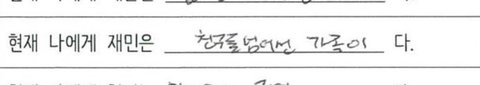 현재 나에게 재민은 친구를 넘어선 가족이 다.